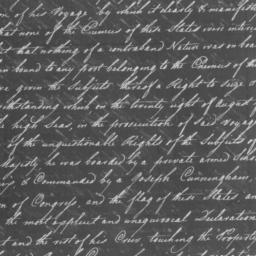 of his Voyage by which it clearly & manifestly
that none of the Enemies of these States were inter
that nothing of a contraband Nature was on boar
bound to any port belonging to the Enemies of the
given the Subjects thereof a Right to seize
withstanding which on the twenty eight of August
high Seas, in the prosecution of said Voyage
of the unquestionable Rights of the Subjects of
Majesty he was boarded by a private armed
& Commanded by a Joseph Cunningham,
of Congress, and the flag of these States, an
the most explicit and unequivocal Declaration
and the rest of his Crew, touching the Property